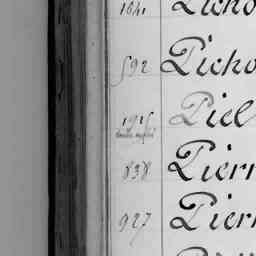 1641 Picho
592 Picho
Piel
838 Pierr
927 Pierr